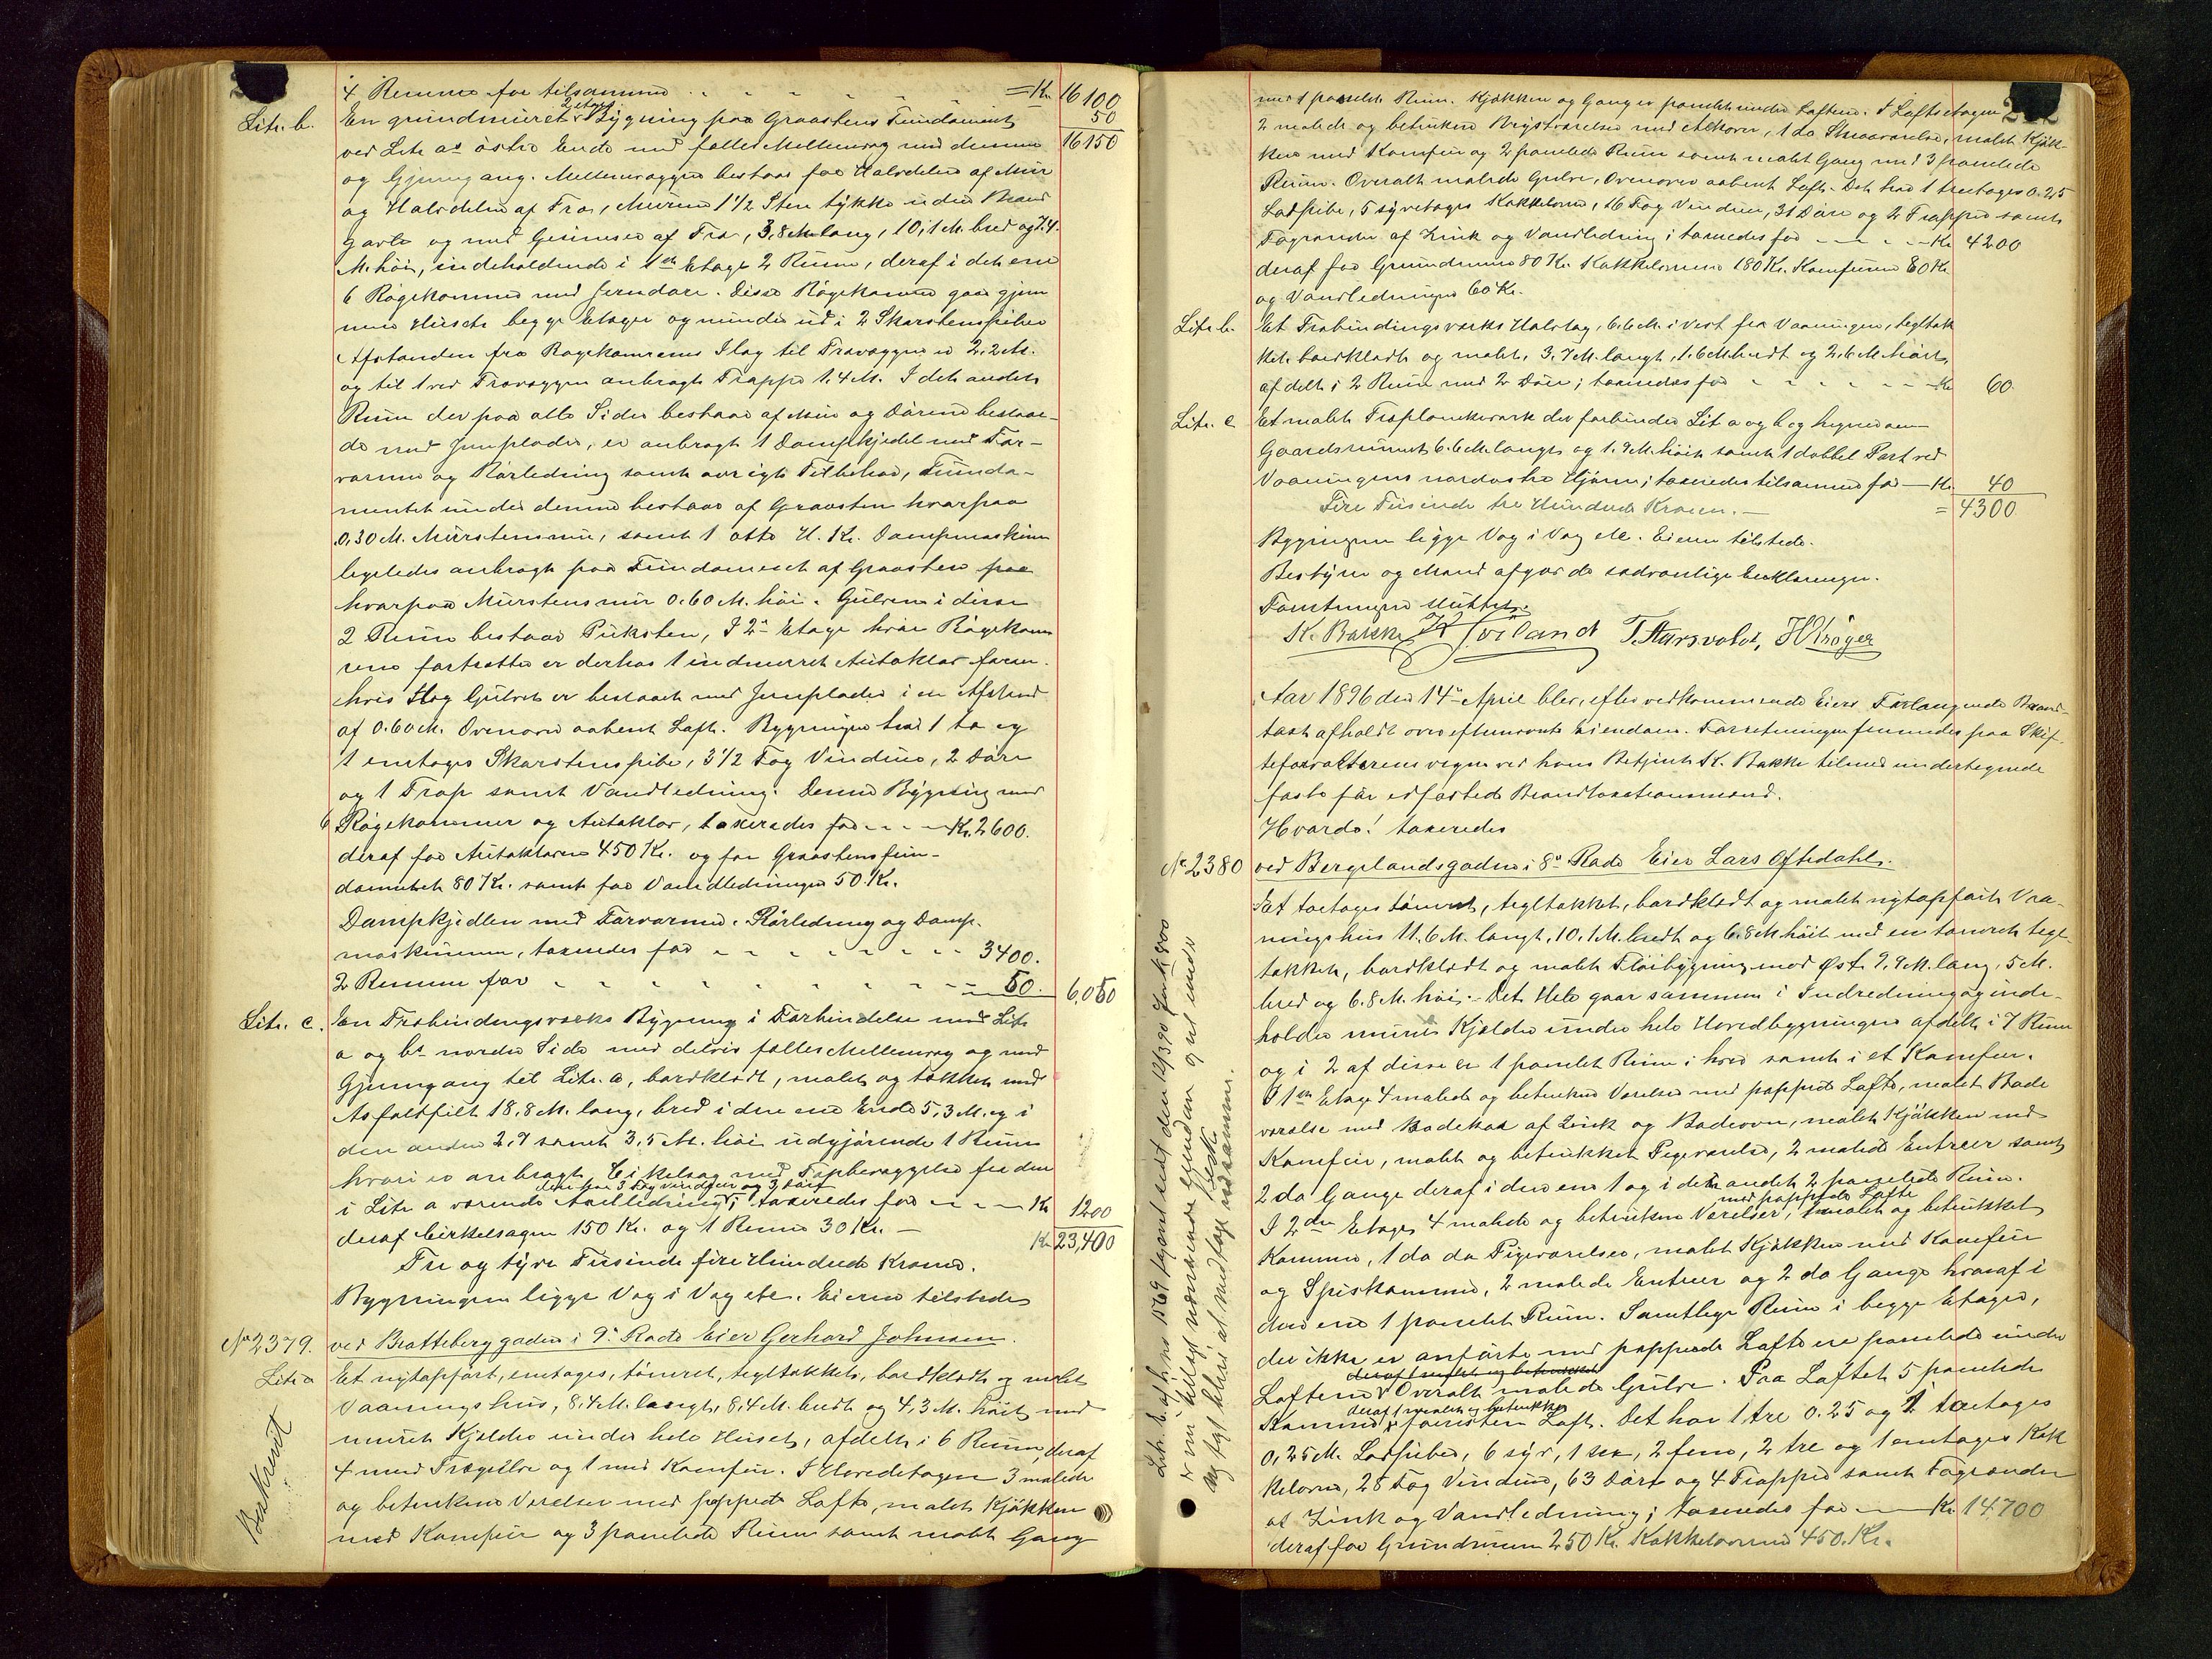 4 Remme for tilsammen . . . . . = Kr. 16100
50
16150
Litr. b. En grundmuret 2 etages Bygning paa Graastens Fundament
ved Litr. a's østre Ende med fælles Mellemvæg med denne
og Gjennemgang. Mellemvæggen bestaar for Halvdelen af Mur
og Halvdelen af Træ, Murene 1 1/2 Sten tykke uden Brand
gavle og med Gesimser af Træ, 3,8 M. lang, 10,1 M. bred og 7,4
M. høi, indeholdende i 1ste Etage 2 Rum, deraf i det ene
6 Røgekammer med Jerndøre. Disse Røgekammer gaar gjen
nem Husets begge Etager og munder ud i 2 Skorstenspiber
Afstanden fra Røgekamrenes Ilæg til Trævæggen er 2,2 M.
og til 1 ved Trævæggen anbragt Trappe 1,4 M. I det andet
Rum der paa alle Sider bestaar af Mur og Dørene beslaae-
de med Jernplader, er anbragt 1 Dampkjedel med For-
varmer og Rørledning samt øvrigt Tilbehør, Funda-
mentet under denne bestaar af Graasten hvorpaa
0,30 M. Murstensmur, samt 1 otte H. Kr. Dampmaskine
ligeledes anbragt paa Fundament af Graasten paa
hvorpaa Murstensmur 0.60 M. høi. Gulvene i disse
2 Rum bestaar Puksten, I 2den Etage hvor Røgekam
rene fortsætter er derhos 1 indmuret Autoklav foran
hvis Ilæg Gulvet er beslaaet med Jernplader i en Afstand
af 0.60 M. Ovenover aabent Loft. Bygningen har 1 to og
1 enetages Skorstenspibe, 3 1/2 Fag Vinduer, 2 Døre
og 1 Trap samt Vandledning. Denne Bygning med
6 Røgekammer og Autoklav, taxeredes for - - - Kr. 2600.
deraf for Autoklaven 450 Kr. og for Graastensfun-
damentet 80 Kr. samt for Vandledningen 50 Kr.
Dampkjedlen med Forvarmer, Rørledning og Damp-
maskinen, taxeredes for - - - - - 3400.
2 Remme for - - - - - - - 50. 6,050
Litr. c. En Træbindingsværks Bygning i Forbindelse med Litr.
a og b's nordre Side med delvis fælles Mellemvæg og med
Gjennemgang til Litr. a, bordklædt, malet og tækket med
Asfaltfilt 18,8 M. lang, bred i den ene Ende 5,3 M. og i
den anden 2,9 samt 3,5 M. høi udgjørende 1 Rum
hvori er anbragt Cirkelsag med Dripbevægelse fra den
den har 3 Fag Vinduer og 3 Døre
i Litr a værende Axelledning; taxeredes for - - - Kr. 1200
deraf Cirkelsagen 150 Kr. og 1 Remme 30 Kr. - Kr. 23,400
Tre og tyve Tusinde fire Hundrede Kroner.
Bygningen ligger Væg i Væg etc. Eieren tilstede
No 2379. ved Brattebergsgaden i 9de Rode Eier Gerhard Johnsen.
Litr a Et nytopført, enetages, tømret, tegltækket, bordklædt og malet
Vaaningshus, 8,4 M. langt, 8,4 M. bredt og 4,3 M. høit med
muret Kjelder under hele Huset, afdelt i 6 Rum, deraf
4 med Trægulve og 1 med Komfur. I Hovedetagen 3 malede
og betrukne Værelser med pappede Lofte, malet Kjøkken
med Komfur og 3 panelede Rum samt malet Gang
med 1 panelet Rum. Kjøkken og Gang er panelet under Loftene. I Loftsetagen
2 malede og betrukne Kvistværelser med Alkover, 1 do Skraaværelse, malet Kjøk-
ken med Komfur og 2 panelede Rum samt malet Gang med 3 panelede
Rum. Overalt malede Gulve, Ovenover aabent Loft. Det har 1 treetages 0.25
Lodpibe, 5 syvetages Kakkelovne, 16 Fag Vinduer, 31 Døre og 2 Trapper samt
Tagrender af Zink og Vandledning; taxeredes for - - - - Kr 4200
deraf for Grundmuren 80 Kr. Kakkelovnene 180 Kr. Komfurene 60 Kr.
og Vandledningen 60 Kr.
Litr b. Et Træbindingsværks Halvtag, 6.6 M. i Vest fra Vaaningen, tegltæk
ket, bordklædt og malet, 3.7 M. langt, 1.6 M. bredt og 2,6 M. høit,
afdelt i 2 Rum med 2 Døre; taxeredes for - - - - - Kr 60
Litr. c Et malet Træplankeværk der forbinder Lit a og b og hegner om
Gaardsrummet 6.6 M. langt og 1.9 M. høit samt 1 dobbel Port ved
Vaaningens nordøstre Hjørne; taxeredes tilsammen for - Kr. 40
Fire Tusinde tre Hundrede Kroner. - = 4300
Bygningen ligger Væg i Væg etc. Eieren tilstede.
Bestyrer og Mænd afgav de sædvanlige Erklæringer.
Forretningen sluttet.
K. Bakke T. Aarsvold, H Krøger
Aar 1896 den 14de April blev, efter vedkommende Eiers Forlangende Brand-
taxt afholdt over eftermævnte Eiendom. Forretningen fremmedes paa Skif-
teforvalterens vegne ved hans Betjent K. Bakke tilmed undertegnede
faste før edfæstede Brandtaxationsmænd.
Hvorda! taxeredes
No 2380 ved Bergelandsgaden i 8de Rode Eier Lars Oftedahl.
Et toetages tømret, tegltækket, bordklædt og malet nytopført Vaa-
ningshus 11.6 M. langt, 10.1 M. bredt og 6.8 M. høit med en tømret tegl-
tækket, bordklædt og malet Fløibygning mod Øst 9,9 M. lang, 5 M.
bred og 6.8 M. høi. Det Hele gaar sammen i Indredning og inde-
holder muret Kjælder under hele Hovedbygningen afdelt i 7 Rum
og i 2 af disse er 1 panelet Rum i hver samt i et Komfur.
I 1ste Etage 4 malede og betrukne Værelser med pappede Lofte, malet Bade
værelse med Badekar af Zink og Badeovn, malet Kjøkken med
Komfur, malet og betrukket Pigeværelse, 2 malede Entreer samt
2 do Gange deraf i den ene 1 og i den anden 2 panelede Rum.
med pappede Lofte
I 2den Etage, 4 malede og betrukne Værelser, 1 malet og betrukket
Kammer, 1 do do Pigeværelse, malet Kjøkken med Komfur
og Spiskammer, 2 malede Entreer og 2 do Gange hvoraf i
den ene 1 panelet Rum. Samtlige Rum i begge Etager,
der ikke er anførte med pappede Lofte ere panelede under
deraf 1 malet og betrukket
Loftene. Overalt malede Gulve. Paa Loftet 5 panelede
deraf 1 malet og betrukket
Kammer, forresten Loft. Det har 1 tre 0.25 og 1 toetages
0,25 M. Lodpiber, 6 syv, 1 sex, 2 fem, 2 tre og 1 enetages Kak
kelovne, 28 Fag Vinduer, 63 Døre og 4 Trapper samt Tagrender
af Zink og Vandledning; taxeredes for - Kr. 14700
deraf for Grundmuren 250 Kr. Kakkelovnene 450. Kr.